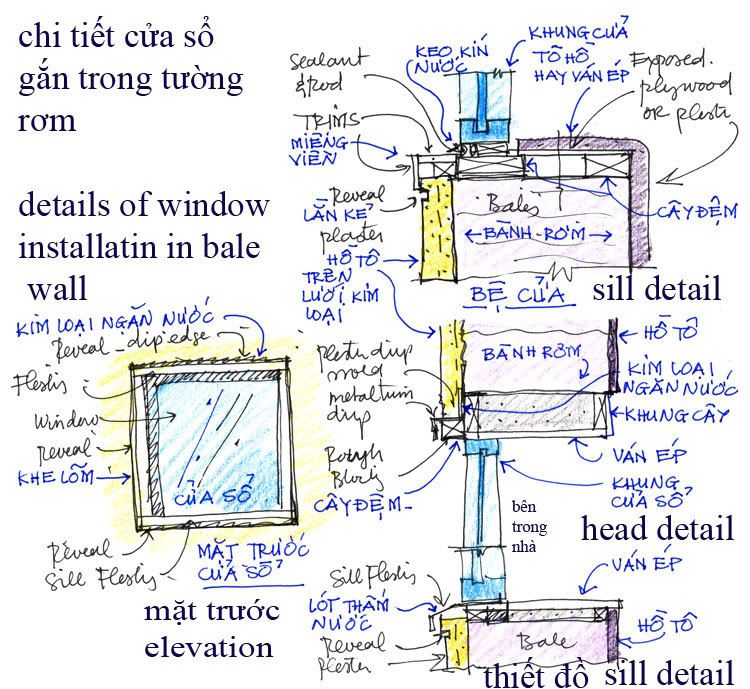 chi tiết cửa sổ
gắn trong tường
rơm
details of window
installatin in bale
wall
Sealant
& Rod
KEO KÍN
NƯỚC
KHUNG CỬA
TÔ HỒ
HAY VÁN ÉP
Exposed.
plywood
OR
TRIMS
MIẾNG
VIỀN
Reveal
LẰN KẺ
plaster
HỒ TÔ
TRÊN
LƯỚI KIM
LOẠI
Bales
BÀNH RƠM
CÂY ĐỆM
BỆ CỬA
sill detail
KIM LOẠI NGĂN NƯỚC
Reveal - dip edge
Window
reveal
KHE LÕM
CỬA SỔ
Reveal
Sill
MẶT TRƯỚC
CỬA SỔ
mặt trước
elevation
mold
BÀNH RƠM
HỒ TÔ
KIM LOẠI
NGĂN NƯỚC
KHUNG CÂY
VÁN ÉP
KHUNG
CỬA SỔ
Rough
CÂY ĐỆM
bên
trong
nhà
head detail
Sill
LÓT THẤM
NƯỚC
Reveal
VÁN ÉP
HỒ TÔ
Bale
thiết đồ sill detail